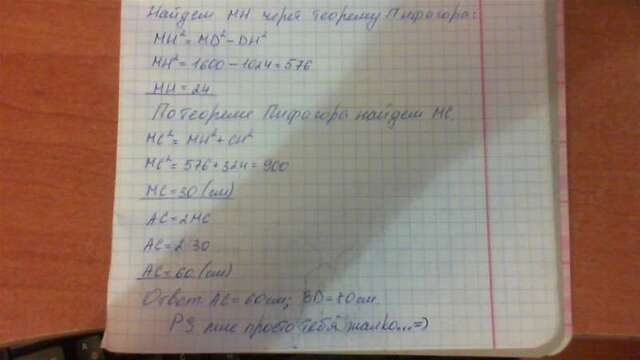 Найдем MH через теорему Пифагора:
MH²=MD²-DH²
MH²=1600-1024=576
MH=24
По теореме Пифагора найдем MC.
MC²=MH²+CH²
MC²=576+324=900
MC=30(см)
AC=2MC
AC=2·30
AC=60(см)
Ответ: AC=60см; BD=80см.
PS мне просто тебя жалко...=)